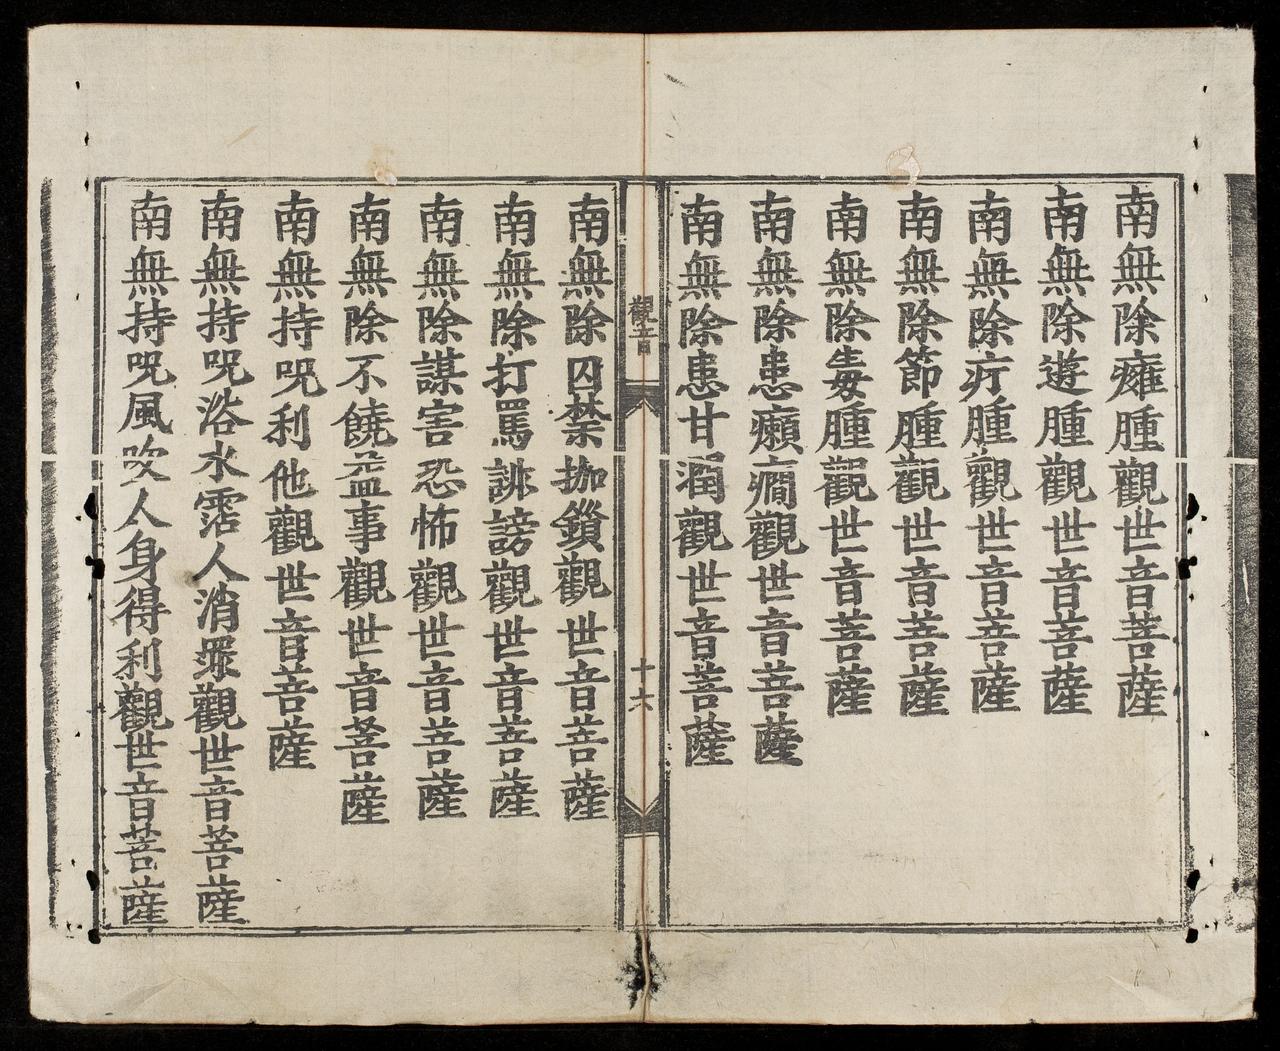 南無除癰腫觀世音菩薩
南無除遊腫觀世音菩薩
南無除疔腫觀世音菩薩
南無除節腫觀世音菩薩
南無除毒腫觀世音菩薩
南無除患癩癇觀世音菩薩
南無除患甘潤觀世音菩薩
觀音
十六
南無除囚禁枷鎖觀世音菩薩
南無除打罵誹謗觀世音菩薩
南無除謀害恐怖觀世音菩薩
南無除不饒益事觀世音菩薩
南無持咒利他觀世音菩薩
南無持咒浴水霑人消罪觀世音菩薩
南無持咒風吹人身得利觀世音菩薩